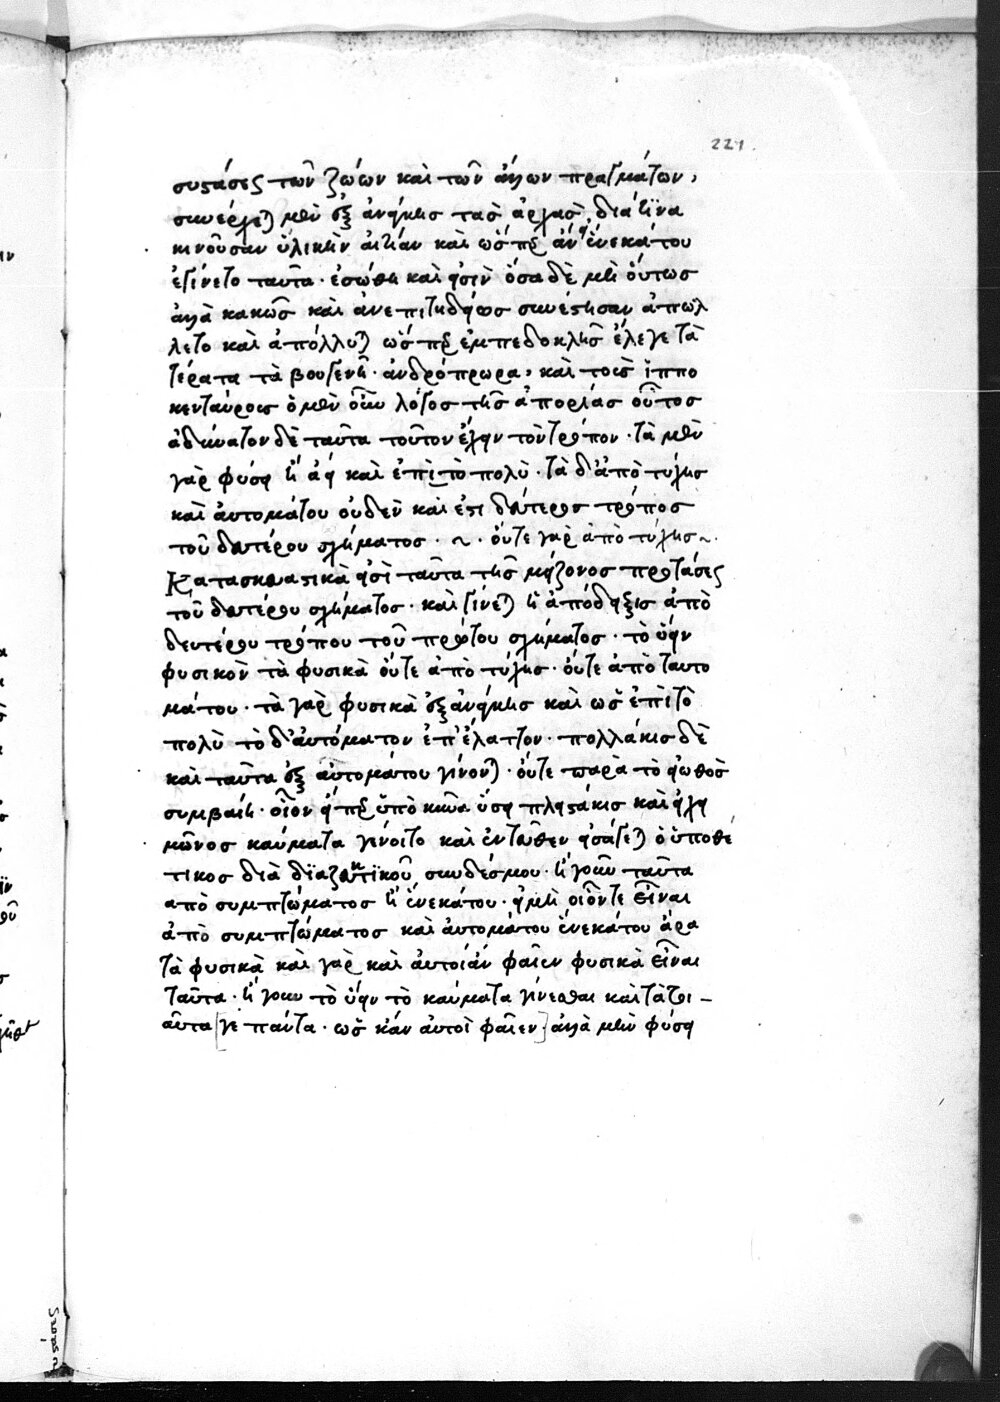 221
συστάσεις τῶν ζώων καὶ τῶν ἄλλων πραγμάτων,
συνέρχεται μὲν ἐξ ἀνάγκης τὰς ἀρχὰς διὰ τῒνα
κινοῦσαν ὑλικὴν αἰτίαν καὶ ὥσπερ ἂν εἰ ἕνεκά του
ἐγίνετο ταῦτα · ἐσώθη καὶ εἰσὶν ὅσα δὲ μὴ οὕτως
ἀλλὰ κακῶς καὶ ἀνεπιτηδείως συνέστησαν ἀπώλ
λετο καὶ ἀπόλλυται ὥσπερ ἐμπεδοκλῆς ἔλεγε τὰ
τέρατα τὰ βουγενῆ · ἀνδρόπρωρα, καὶ τοῖς ἵππο
κενταύροις ὁ μὲν οὖν λόγος τῆς ἀπορίας οὗτος
ἀδύνατον δὲ ταῦτα τοῦτον ἔχειν τὸν τρόπον · τὰ μὲν
γὰρ φύσει ἢ ἀεὶ καὶ ἐπὶ τὸ πολὺ · τὰ δ' ἀπὸ τύχης
καὶ αὐτομάτου οὐδὲν καὶ ἔστι δεύτερος τρόπος
τοῦ δευτέρου σχήματος · ~ · οὔτε γὰρ ἀπὸ τύχης ~ ·
Κατασκευαστικὰ εἰσὶ ταῦτα τῆς μείζονος προτάσεις
τοῦ δευτέρου σχήματος · καὶ γίνεται ἡ ἀπόδειξις ἀπὸ
δευτέρου τρόπου τοῦ πρώτου σχήματος · τὸ ὕειν
φυσικὸν τὰ φυσικὰ οὔτε ἀπὸ τύχης · οὔτε ἀπὸ ταυτο
μάτου · τὰ γὰρ φυσικὰ ἐξ ἀνάγκης καὶ ὡς ἐπὶ τὸ
πολὺ τὸ δ' αὐτόματον ἐπ' ἔλαττον · πολλάκις δὲ
καὶ ταῦτα ἐξ αὐτομάτου γίνονται · οὔτε παρὰ τὸ εἰωθὸς
συμβαίη · οἷον εἴπερ ὑπὸ κύνα ὕσει πλειστάκις καὶ εἰ χει
μῶνος καύματα γένοιτο καὶ ἐνταῦθεν εἰσάγεται ὁ ὑποθε
τικος διὰ διαζευκτικοῦ συνδέσμου · ἢ γοῦν ταῦτα
ἀπὸ συμπτώματος ἢ ἕνεκά του · εἰ μὴ οἷόν τε εἶναι
ἀπὸ συμπτώματος καὶ αὐτομάτου ἕνεκά του ἄρα
τὰ φυσικὰ καὶ γὰρ καὶ αὐτοὶ ἂν φαῖεν φυσικὰ εἶναι
ταῦτα · ἢ γοῦν τὸ ὕειν τὸ καύματα γίνεσθαι καὶ τὰ τοι-
αῦτα [γε πάντα · ὡς κἂν αὐτοὶ φαῖεν] ἀλλὰ μὴν φύσει